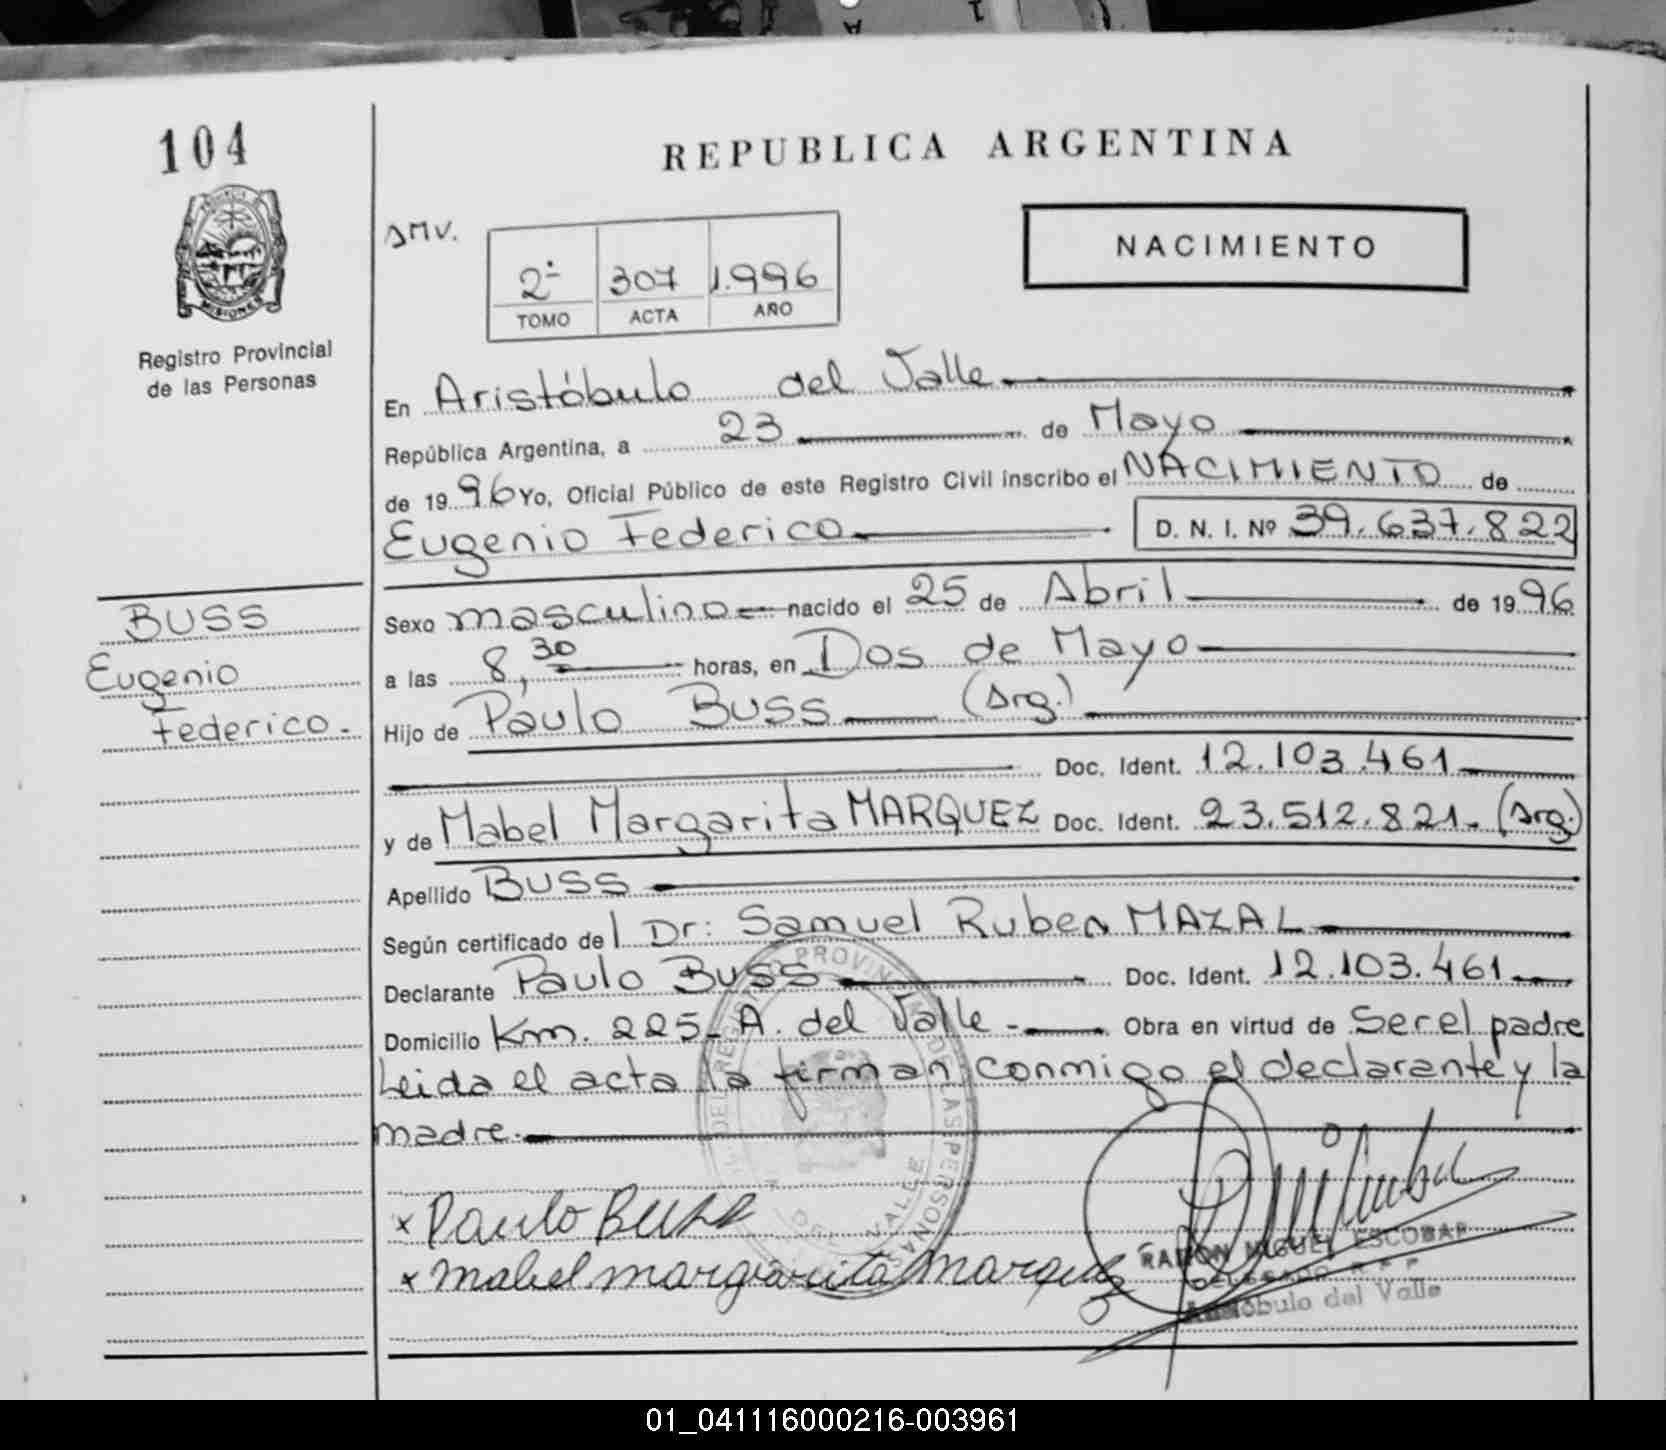 104
REPUBLICA ARGENTINA
PROVINCIA DE
MISIONES
Registro Provincial
de las Personas
SMV.
2º 307 1.996
TOMO ACTA AÑO
NACIMIENTO
En Aristóbulo del Valle
República Argentina, a 23 de Mayo
de 1996 Yo, Oficial Público de este Registro Civil inscribo el NACIMIENTO de
Eugenio Federico D. N. I. Nº 39.637.822
BUSS
Eugenio
Federico.
Sexo masculino nacido el 25 de Abril de 1996
a las 8,30 horas, en Dos de Mayo
Hijo de Paulo BUSS (Arg.)
Doc. Ident. 12.103.461
y de Mabel Margarita MARQUEZ Doc. Ident. 23.512.821. (Arg.)
Apellido BUSS
Según certificado del Dr: Samuel Ruben MAZAL
Declarante Paulo BUSS Doc. Ident. 12.103.461
Domicilio Km. 225- A. del Valle - Obra en virtud de Ser el padre
Leida el acta la firman conmigo el declarante y la
madre.
x Paulo Buss
x Mabel margarita Marquez
DEL REGISTRO PROVINCIAL DE LAS PERSONAS
DEL VALLE
RAMON MIGUEL ESCOBAR
Aristóbulo del Valle
01_041116000216-003961